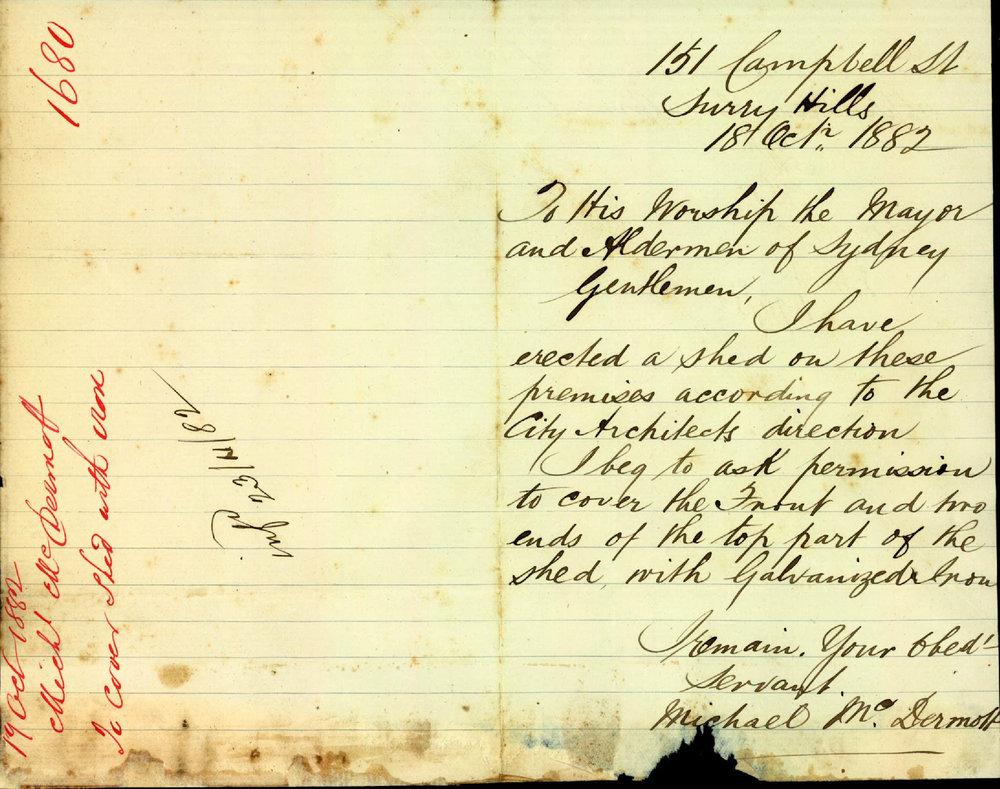 1680
19 Oct 1882
Mich! McDermott
To Cover Shed with Iron
23/11/82
151 Campbell St
Surry Hills
18 Octr. 1882
To His Worship the Mayor
and Aldermen of Sydney
Gentlemen,
I have
erected a shed on these
premises according to the
City Architects direction
I beg to ask permission
to cover the Front and two
ends of the top part of the
shed, with Galvanized Iron
I remain. Your Obed'
Servant
Michael McDermott